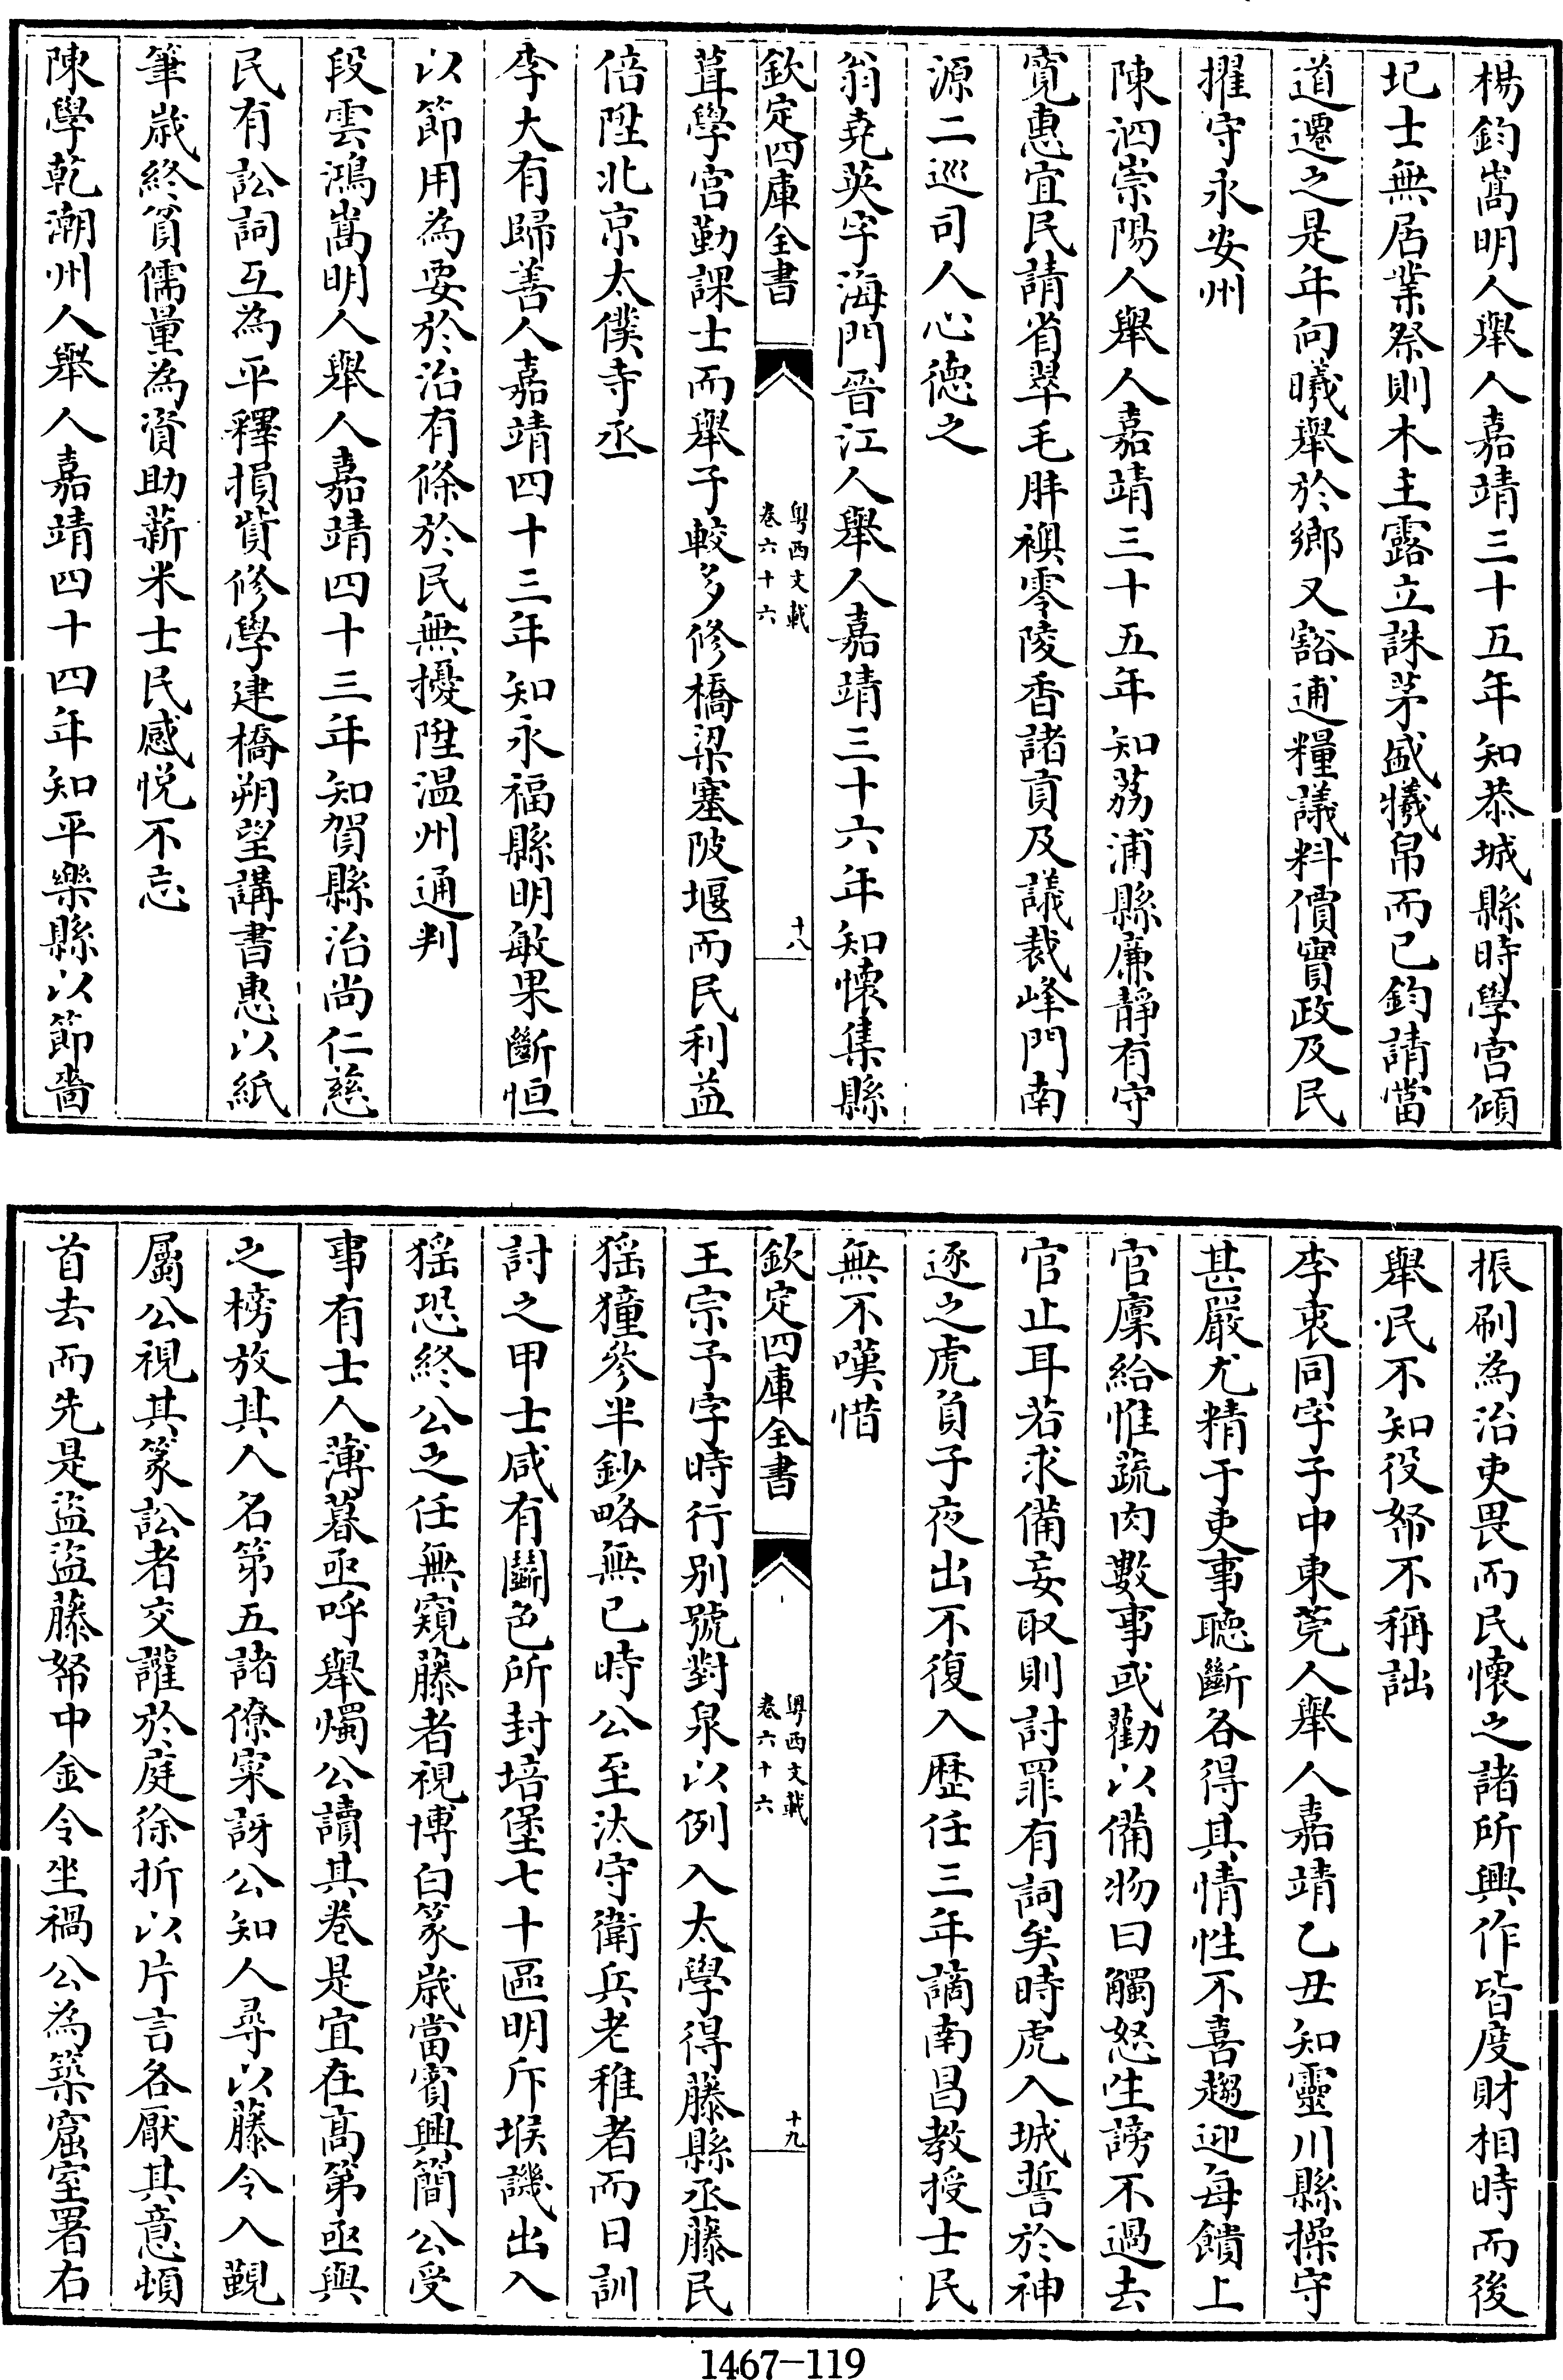 楊鈞嵩明人舉人嘉靖三十五年知恭城縣時學宫傾
圮士無居業祭則木主露立誅茅盛犧帛而已鈞請當
道遷之是年向曦舉於鄉又豁逋糧議料價實政及民
擢守永安州
陳泗崇陽人舉人嘉靖三十五年知荔浦縣廉靜有守
寛惠宜民請省翠毛胖襖零陵香諸貢及議裁峰門南
源二巡司人心徳之
翁堯英字海門晉江人舉人嘉靖三十六年知懷集縣
欽定四庫全書
粤西文載
卷六十六
十八
葺學宫勤課士而舉子較多修橋梁塞陂堰而民利益
倍陞北京太僕寺丞
李大有歸善人嘉靖四十三年知永福縣明敏果斷恒
以節用為要於治有條於民無擾陞温州通判
段雲鴻嵩明人舉人嘉靖四十三年知賀縣治尚仁慈
民有訟詞互為平釋捐貲修學建橋朔望講書惠以紙
筆歲終貧儒量為資助薪米士民感悦不忘
陳學乾潮州人舉人嘉靖四十四年知平樂縣以節嗇
振刷為治吏畏而民懷之諸所興作皆度財相時而後
舉民不知役帑不稱詘
李衷同字子中東莞人舉人嘉靖乙丑知靈川縣操守
甚嚴尤精于吏事聽斷各得其情性不喜趨迎每饋上
官廩給惟蔬肉數事或勸以備物曰觸怒生謗不過去
官止耳若求備妄取則討罪有詞矣時虎入城誓於神
逐之虎負子夜出不復入歴任三年謫南昌教授士民
無不嘆惜
欽定四庫全書
粤西文載
卷六十六
十九
王宗予字時行别號對泉以例入太學得藤縣丞藤民
猺獞參半鈔略無已時公至汰守衛兵老稚者而日訓
討之甲士咸有鬭色所封培堡七十區明斥堠譏出入
猺恐終公之任無窺藤者視博白篆歲當賓興簡公受
事有士人薄暮亟呼舉燭公讀其巻是宜在高第亟與
之榜放其人名第五諸僚寀訝公知人尋以藤令入覲
屬公視其篆訟者交讙於庭徐折以片言各厭其意頓
首去而先是盜盜藤帑中金令坐禍公為築窟室署右
1467-119